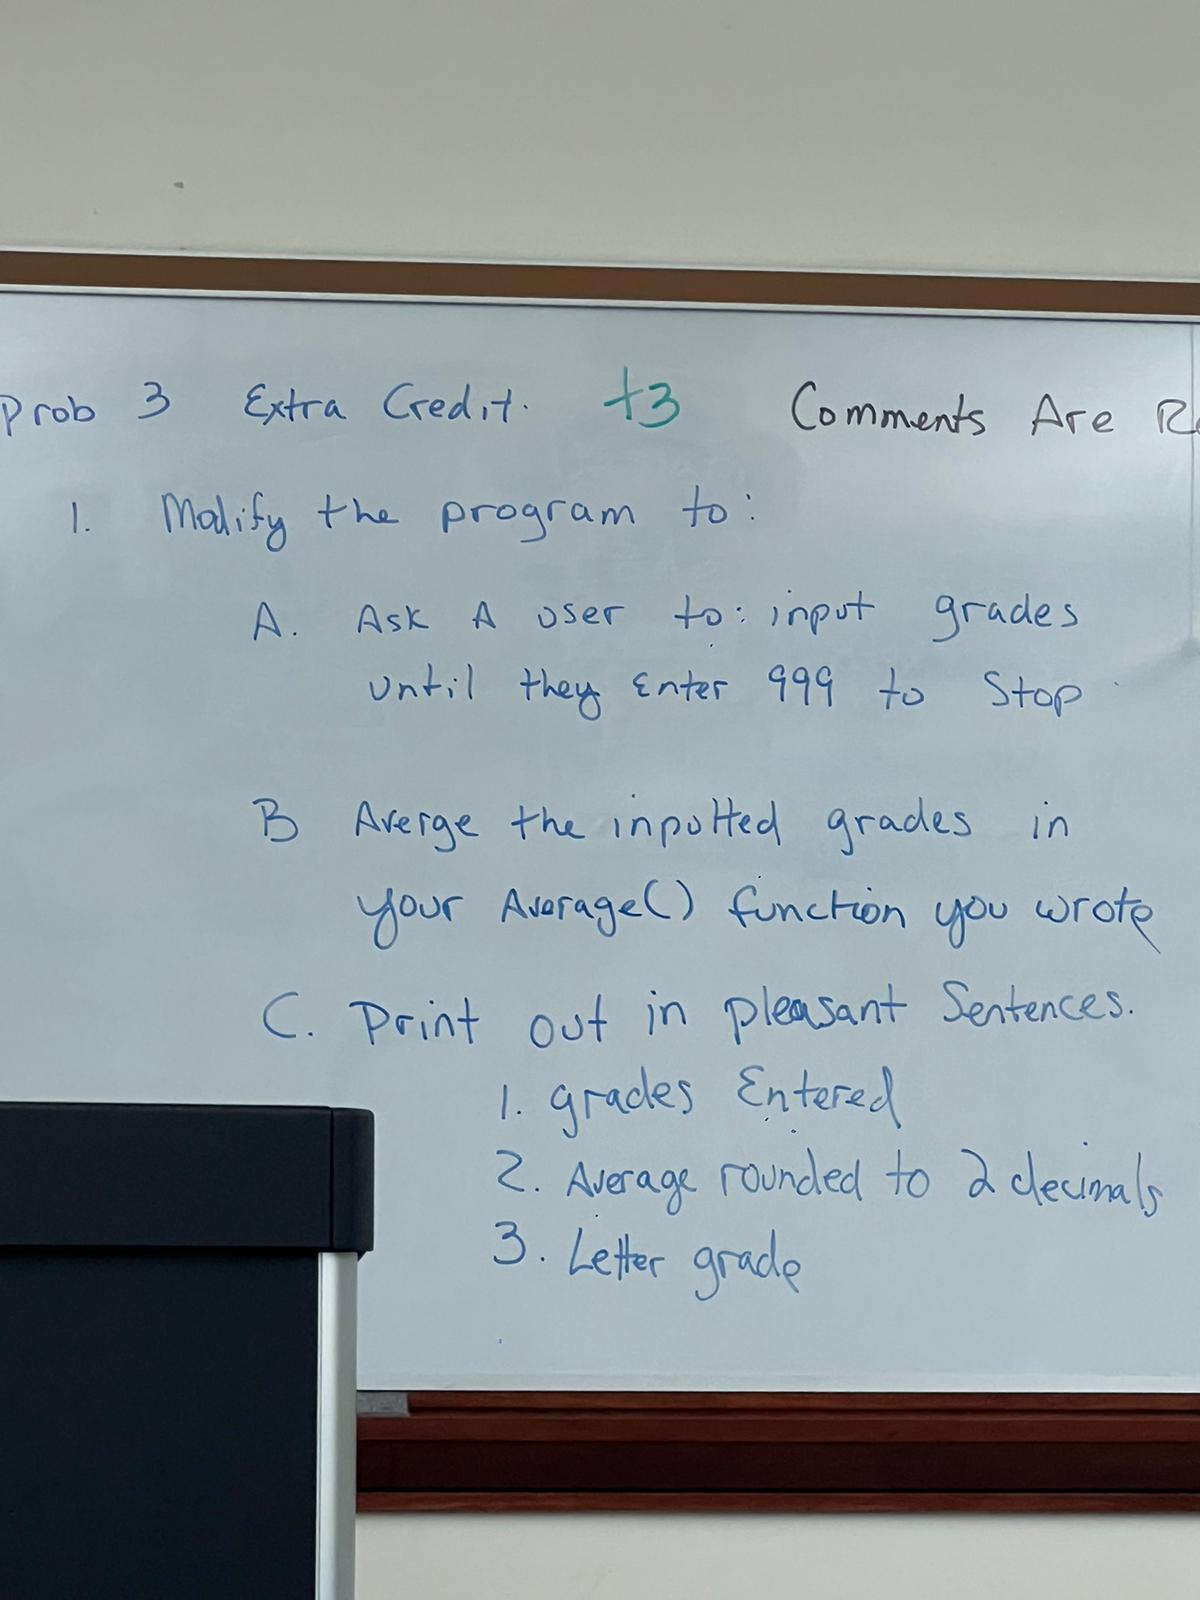 Prob 3 Extra Credit. +3 Comments Are
1. Modify the program to:
A. Ask A user to: input grades
until they Enter 999 to Stop
B Averge the inputted grades in
your Average() function you wrote
C. Print out in pleasant Sentences.
1. grades Entered
2. Average rounded to 2 decimals
3. Letter grade